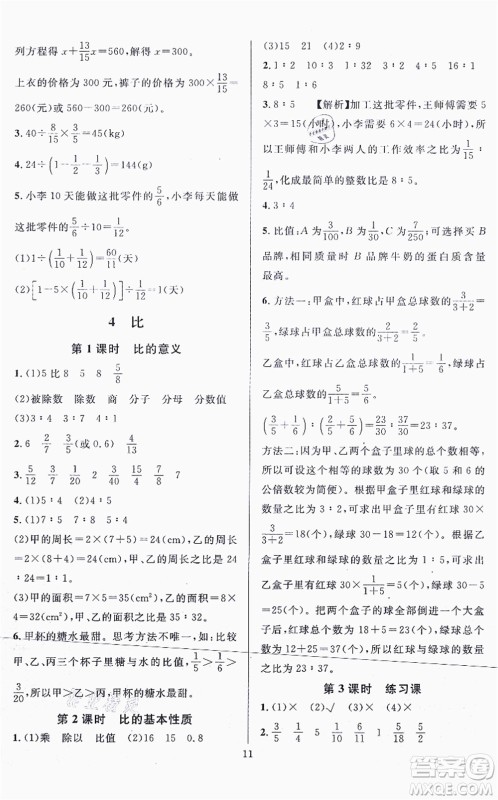 列方程得 x+13/15x=560,解得 x=300。
上衣的价格为 300 元,裤子的价格为 300×13/15
=260(元)或 560-300=260(元)
3. 40÷8/15-40÷5/8
4. 24÷(1-1/2-1/3)=144(元)
5. 小李 10 天能做这批零件的5/6,小李每天能做
这批零件的5/6÷10=1/12。
(1)1÷(1/10+1/12)=60/11(天)
(2)[1-5×(1/10+1/12)]÷1/12=1(天)
4 比
第 1 课时 比的意义
1. (1)5 比 8 5 8 5/8
(2)被除数 除数 商 分子 分母 分数值
(3)3∶4 3∶7 4∶1
2. 6 2/7 3/5(或 0.6) 4
3. 5/12 3/7 1/20 3/2 2
4. (1)√ (2)×
5. (1)7∶8
(2)甲的周长=2×(7+5)=24(cm),乙的周长=
2×(8+4)=24(cm),甲、乙的周长之比是 1∶1。
(3)甲的面积=7×5=35(cm²),乙的面积=8×
4=32(cm²),甲、乙的面积之比是 35∶32。
6. 甲杯的糖水最甜。思考方法不唯一,如:比较
甲、乙、丙三个杯子里糖与水的比值,1/5>4/25>
3/20,所以甲、乙、丙三杯糖水中,甲杯的糖水最甜。
第 2 课时 比的基本性质
1. (1)乘 除以 (2)16 15 0.8 0.8
(3)15 21 (4)2∶9
2. 1∶2 9∶2 1∶6 4∶1 16∶15
8∶5 1∶5
3. 8∶5 【解析】加工这批零件,王师傅需要
5×3=15(小时),小李需要 6×4=24(小时),所
以王师傅和小李两人的工作效率之比为1/15∶
1/24,化成最简单的整数比为 8∶5。
4. 3∶4
5. 比值:A 为3/100,B 为1/32,C 为7/250;可选择买 B
品牌,相同质量品牌牛奶的蛋白质含量
最高。
6. 方法一:甲盒中,红球占甲盒总球数的3/(3+2)=
3/5,绿球占甲盒总球数的2/(3+2)=2/5;
乙盒中,红球占乙盒总球数的1/(1+5)=1/6,绿球
占乙盒总球数的5/(1+5)=5/6。
(3/5+1/6)∶(2/5+5/6)=23/30∶37/30=23∶37
方法二:因为甲、乙两个盒子里球的总个数相等,
所以可把每个盒子的球数看作 30(5 和 6 的公
公倍数较为简便)。甲盒子里红球和绿球的个
数之比为 3∶2,所以甲盒子里有红球 30×
3/(3+2)=18(个),绿球 30-18=12(个);乙盒子
里红球和绿球的数量之比为 1∶5,所以
乙盒子里有红球 30×1/(1+5)=5(个),绿球 30-
5=25(个)。把两个盒子的球全部倒入一个大盒
子后,大盒子里的红球和绿球的数量之比为
(18+5)∶(12+25)=23∶37,所以红球和绿球的数
量之比为 23∶37。
第 3 课时 练习课
1. (1)× (2)√ (3)× (4)× (5)√
2. 3 15 24 16
11